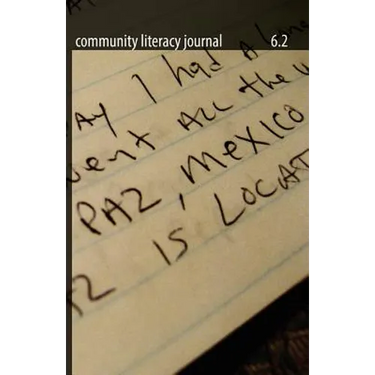 community literacy journal 6.2
AY I had a long
went ALL the w
PAZ, MEXICO
AZ IS LOCAT